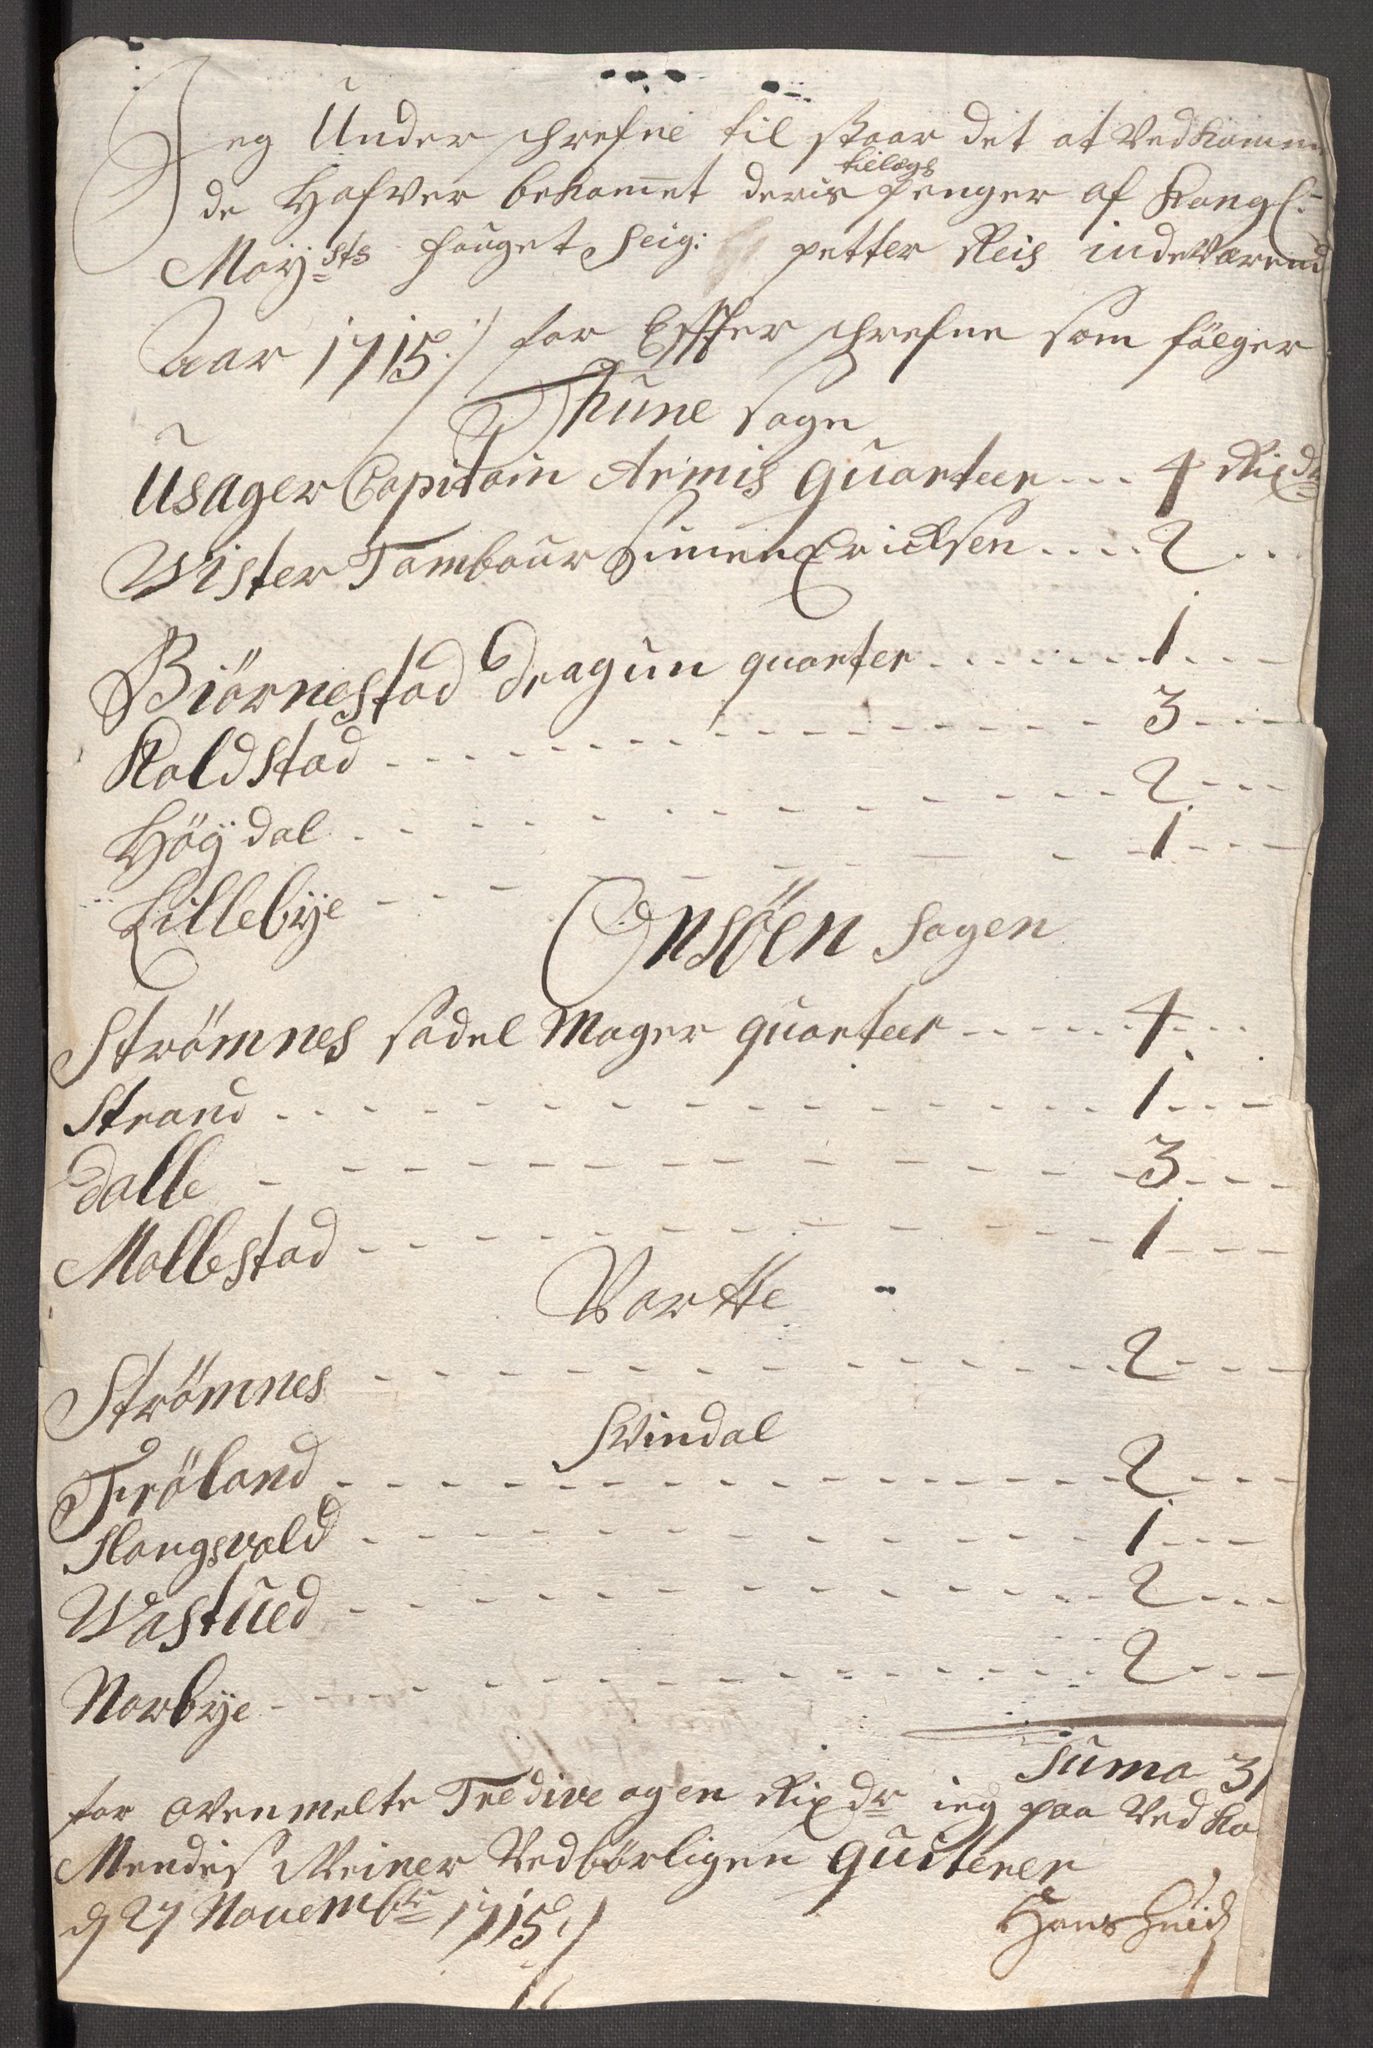 Jeg Under schrefne til staar det at Vedkommn
de Hafver bekomet deris tillegs Penger af Kongl:
Mayss. fouget Seig: petter Reis indeVærend
Aar 1715 :/ for Effter schrefne som fölger
Thune sogn
Usager Capitain Armis quarteer ... 4 Rixdr
Wister Tambour Simen Ericksen .... 2 ...
Biörnestad dragun quarter ....... 1 ....
Kaldstad ............... 3 ....
Höÿdal .......... 2 ....
Lillebÿe ...... 1 ....
Onsöen Sogen
Strömnes sadel Mager quarteer ...... 4 ...
Strand .............. 1 ....
Dalle ............ 3 ....
Mallestad ........... 1 ....
Vartte
Strömnes ............ 2 ....
Svindal
Fröland ............ 2 ....
Slangsvold .......... 1 ...
Wastued ........... 2 ...
Norbÿe ............ 2 ....
Suma 31
for ovenmelte Tredive og en Rixdr ieg paa Vedko
Mendis Veiner Vedbörligen quiterer
d 27 Novembr 1715 :/
Hans